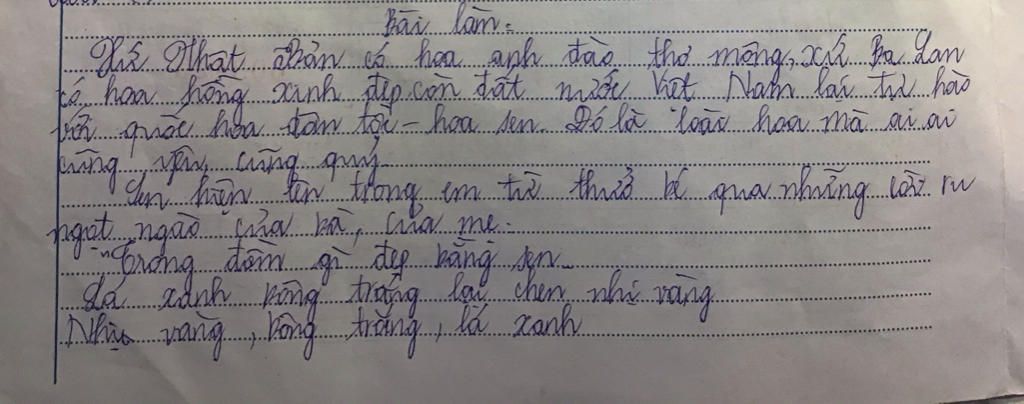 Bài làm:
Xứ Nhật Bản có hoa anh đào thơ mộng, xứ Ba Lan
có hoa hồng xinh đẹp còn đất nước Việt Nam lại tự hào
với quốc hoa dân tộc - hoa sen. Đó là loài hoa mà ai ai
cũng yêu, cũng quý.
Sen hiện lên trong em từ thuở bé qua những lời ru
ngọt ngào của bà, của mẹ:
"Trong đầm gì đẹp bằng sen
Lá xanh bông trắng lại chen nhị vàng
Nhị vàng, bông trắng, lá xanh